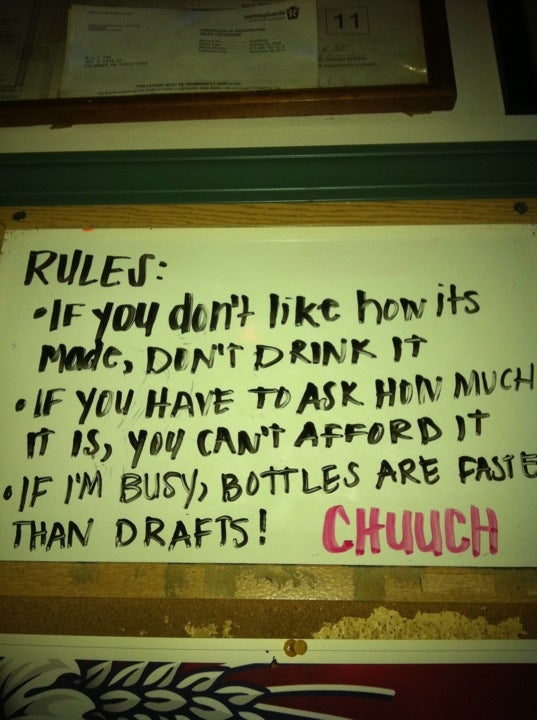 pennsylvania
11
CERTIFICATE OF REGISTRATION
RULES:
•IF YOU don't like how its
made, DON'T DRINK IT
•IF YOU HAVE TO ASK HOW MUCH
IT IS, YOU CAN'T AFFORD IT
•IF I'M BUSY, BOTTLES ARE FASTE
THAN DRAFTS! CHUUCH